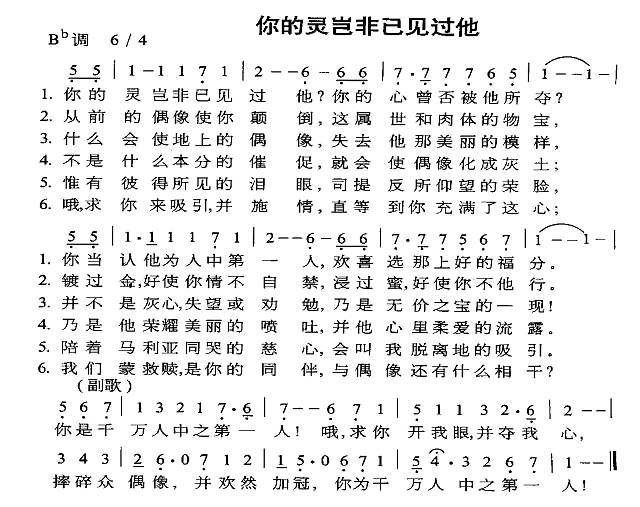 你的灵岂非已见过他
Bb调 6/4
5 5 | 1-1 1 7 1 | 2--6-6 6 | 7·7 7 7 6 5 | 1--1- |
1. 你的 灵岂非已见过 他?你的 心曾否被他所夺?
2. 从前 的偶像使你颠 倒,这属 世和肉体的物宝,
3. 什么 会使地上的偶 像,失去 他那美丽的模样,
4. 不是 什么本分的催 促,就会 使偶像化成灰土;
5. 惟有 彼得所见的泪 眼,司提 反所仰望的荣脸,
6. 哦,求 你来吸引,并施 情,直等 到你充满了这心;
5 5 | 1·1 1 1 7 1 | 2--6-6 6 | 7·7 7 5 6 7 | 1--1- |
1. 你当 认他为人中第一 人,欢喜 选那上好的福分。
2. 镀过 金,好使你情不自 禁,浸过 蜜,好使你不他行。
3. 并不 是灰心,失望或劝 勉,乃是 无价之宝的一现!
4. 乃是 他荣耀美丽的喷 吐,并他 心里柔爱的流露。
5. 陪着 马利亚同哭的慈 心,会叫 我脱离地的吸引。
6. 我们 蒙救赎,是你的同 伴,与偶像 还有什么相干?
(副歌)
5 6 7 | 1 3 2 1 7·6 | 7--6 7 1 | 5 1 1 3 2·6 | 2--|
你是千 万人中之第一 人! 哦,求你 开我眼,并夺我 心,
3 4 3 | 2 6·0 7 1 2 | 1 5·0 6 7 1 | 5 4·3 2 6 7 | 1--‖
摔碎众 偶像, 并欢然 加冠, 你为千 万人 中之第一 人!